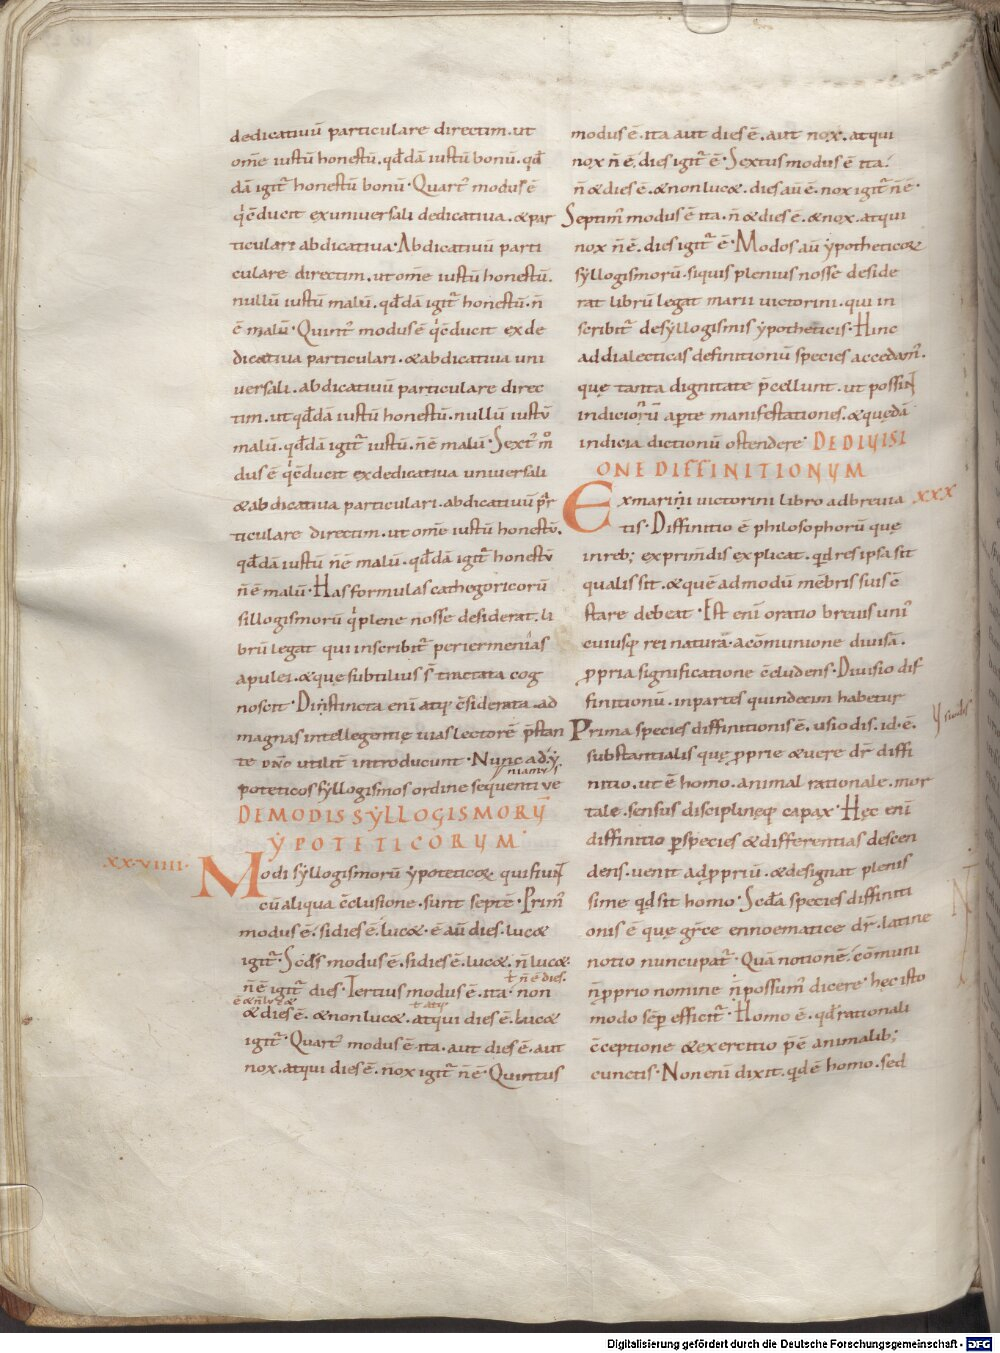 dedicatiuū particulare directim. ut
om̄e iustū honestū. qd̄dā iustū bonū. qd̄
dā igit̄ honestū bonū. Quart' modus ē
q̇ c̄ducit ex uniuersali dedicatiua. & par
ticulare abdicatiua. Abdicatiuū parti
culare directim. ut om̄e iustū honestū.
nullū iustū malū. qd̄dā igit̄ honestū. n̄
ē malū. Quint' modus ē q̇ c̄ducit ex de
dicatiua particulari. & abdicatiua uni
uersali. abdicatiuū particulare direc
tim. ut qd̄dā iustū honestū. nullū iustū
malū. qd̄dā igit̄ iustū. n̄ ē malū. Sext' mo
dus ē q̇ c̄ducit ex dedicatiua uniuersali
& abdicatiua particulari. abdicatiuū par
ticulare directim. ut om̄e iustū honestū.
qd̄dā iustū n̄ ē malū. qd̄dā igit̄ honestū
n̄ ē malū. Has formulas cathegoricorū
sillogismorū q̇ plene nosse desiderat. li
brū legat qui inscribit̄ periermenias
apulei. & quę subtilius s̄ tractata cog
noscit. Distincta enī atq; c̄siderata. ad
magnas intellegentię uias lectorē p̄stan
te dn̄o utilit̄ introducunt. Nunc ad ẏ
poteticos syllogismos ordine sequenti ve
niamus
DE MODIS SYLLOGISMORŪ
YPOTETICORUM.
XX.VIIII.
Modi syllogismorū ẏpotetico& qui fiunt
cū aliqua c̄clusione. sunt septē. Prim'
modus ē. si dies ē. luc&. ē aū dies. luc&
igit̄. Scd's modus ē. si dies ē. luc&. n̄ luc&.
ł n̄ ē dies.
n̄ ē igit̄ dies. Tertius modus ē. ita. non
ē & n̄ luc& ł atq;
& dies ē. & non luc&. atqui dies ē. luc&
igit̄. Quart' modus ē. ita. aut dies ē. aut
nox. atqui dies ē. nox igit̄ n̄ ē. Quintus
modus ē. ita aut dies ē. aut nox. atqui
nox n̄ ē. dies igit̄ ē. Sextus modus ē ita.
n̄ & dies ē. & non luc&. dies aū ē. nox igit̄ n̄ ē.
Septim' modus ē ita. n̄ & dies ē. & nox. atqui
nox n̄ ē. dies igit̄ ē. Modos aū ẏpothetico&
syllogismorū. siquis plenius nosse deside
rat librū legat marii uictorini. qui in
scribit̄ de syllogismis ẏpotheticis. Hinc
ad dialecticas definitionū species accedam'.
quę tanta dignitate p̄cellunt. ut possint
indiciorū aperte manifestationes. & quędā
indicia dictionū ostendere. DE DIVISI
ONE DIFFINITIONVM
XXX
Ex marii uictorini libro adbreuia
tis. Diffinitio ē philosophorū quę
in reb; exprimdis explicat. qd̄ res ipsa sit
qualis sit. & quē admodū mēbris suis c̄
stare debeat. Est enī oratio breuis uni'
cuiusq; rei naturā. a cōmunione diuisā.
p̱pria significatione c̄cludens. Diuisio dif
finitionū. in partes quindecim habetur
Prima species diffinitionis ē. usiodis. id. ē.
substantialis quę p̱prie & uere dr̄ diffi
nitio. ut ē homo. animal rationale. mor
tale. sensus disciplinęq; capax. Hęc enī
diffinitio p̱ species & differentias descen
dens. uenit ad p̱priū. & designat plenis
sime qd̄ sit homo. Scd̄a species diffiniti
onis ē quę gr̄ce ennoematice dr̄. latine
notio nuncupat̄. Quā notionē. cōmuni
n̄ p̱prio nomine n̄ possum' dicere. hęc isto
modo sēp̱ efficit̄. Homo ē. qd̄ rationali
c̄ceptione & exercitio p̄ē animalib;
cunctis. Non enī dixit. qd̄ ē homo. sed
Digitalisierung gefördert durch die Deutsche Forschungsgemeinschaft - DFG